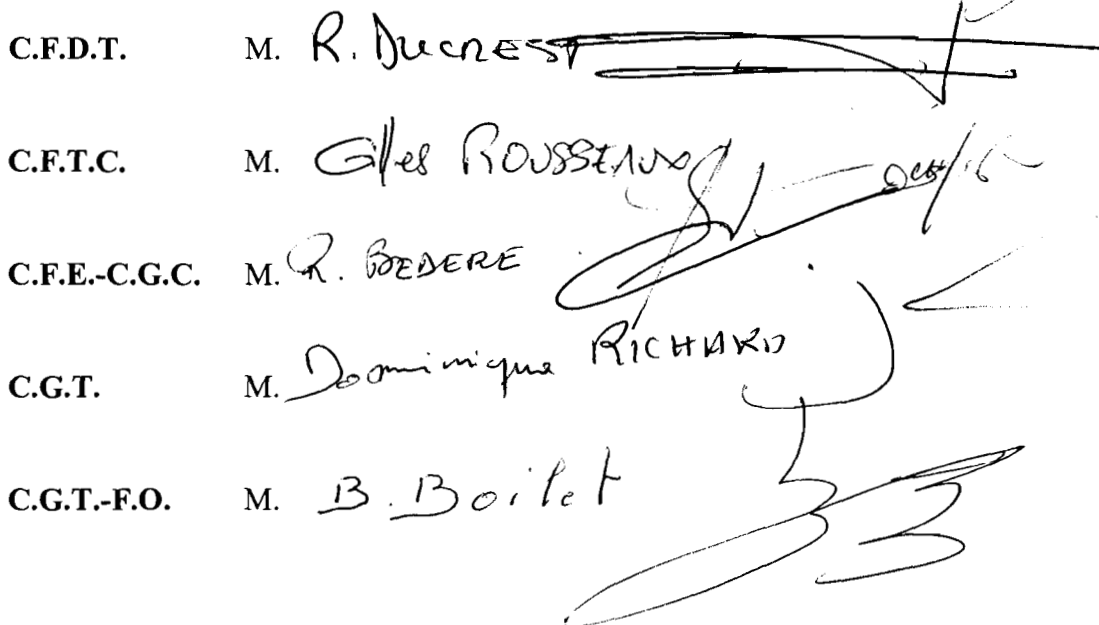 C.F.D.T. M. R. DUCREST
C.F.T.C. M. Gilles ROUSSEAUX
C.F.E.-C.G.C. M. R. BEDERE
C.G.T. M. Dominique RICHARD
C.G.T.-F.O. M. B. Boilet